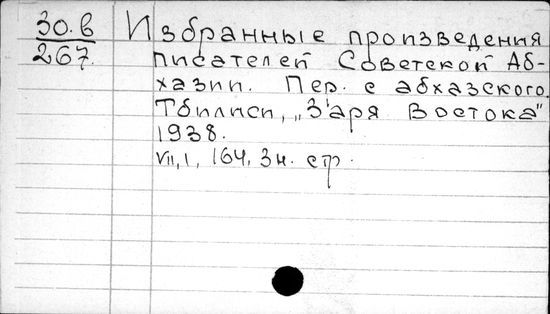 30.в
267.
Избранные произведения
писателей Советской Аб-
хазии. Пер. с абхазского.
Тбилиси, „Заря Востока"
1938.
VII, 1, 164, 3 н. стр.